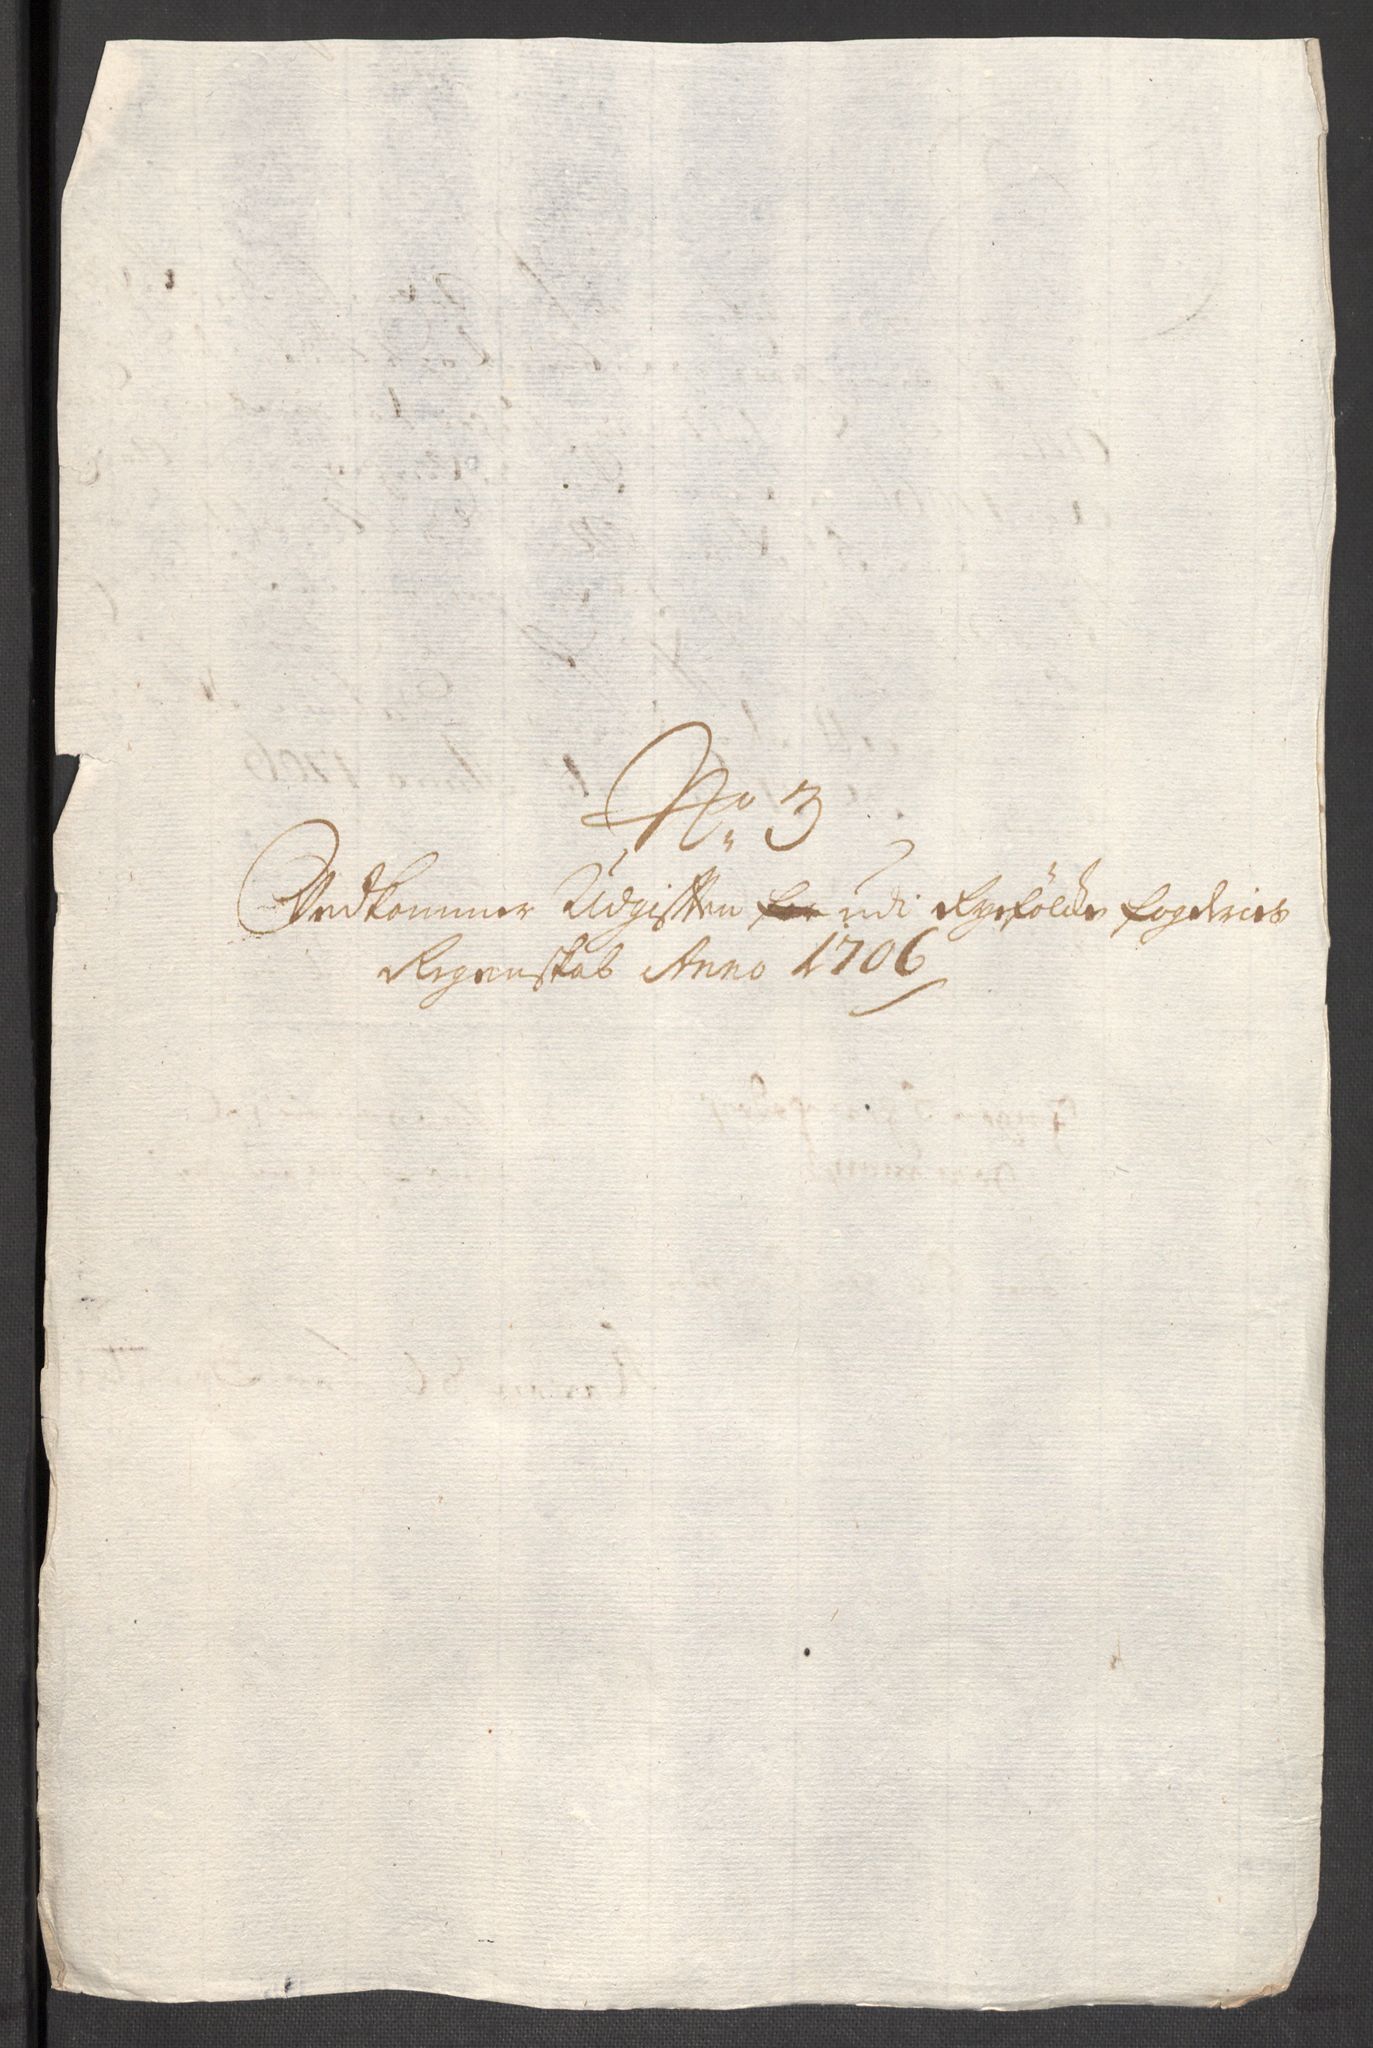 No. 3
Vedkommer Udgifften for udi Ryefölcke fogderies
Regenskab Anno 1706